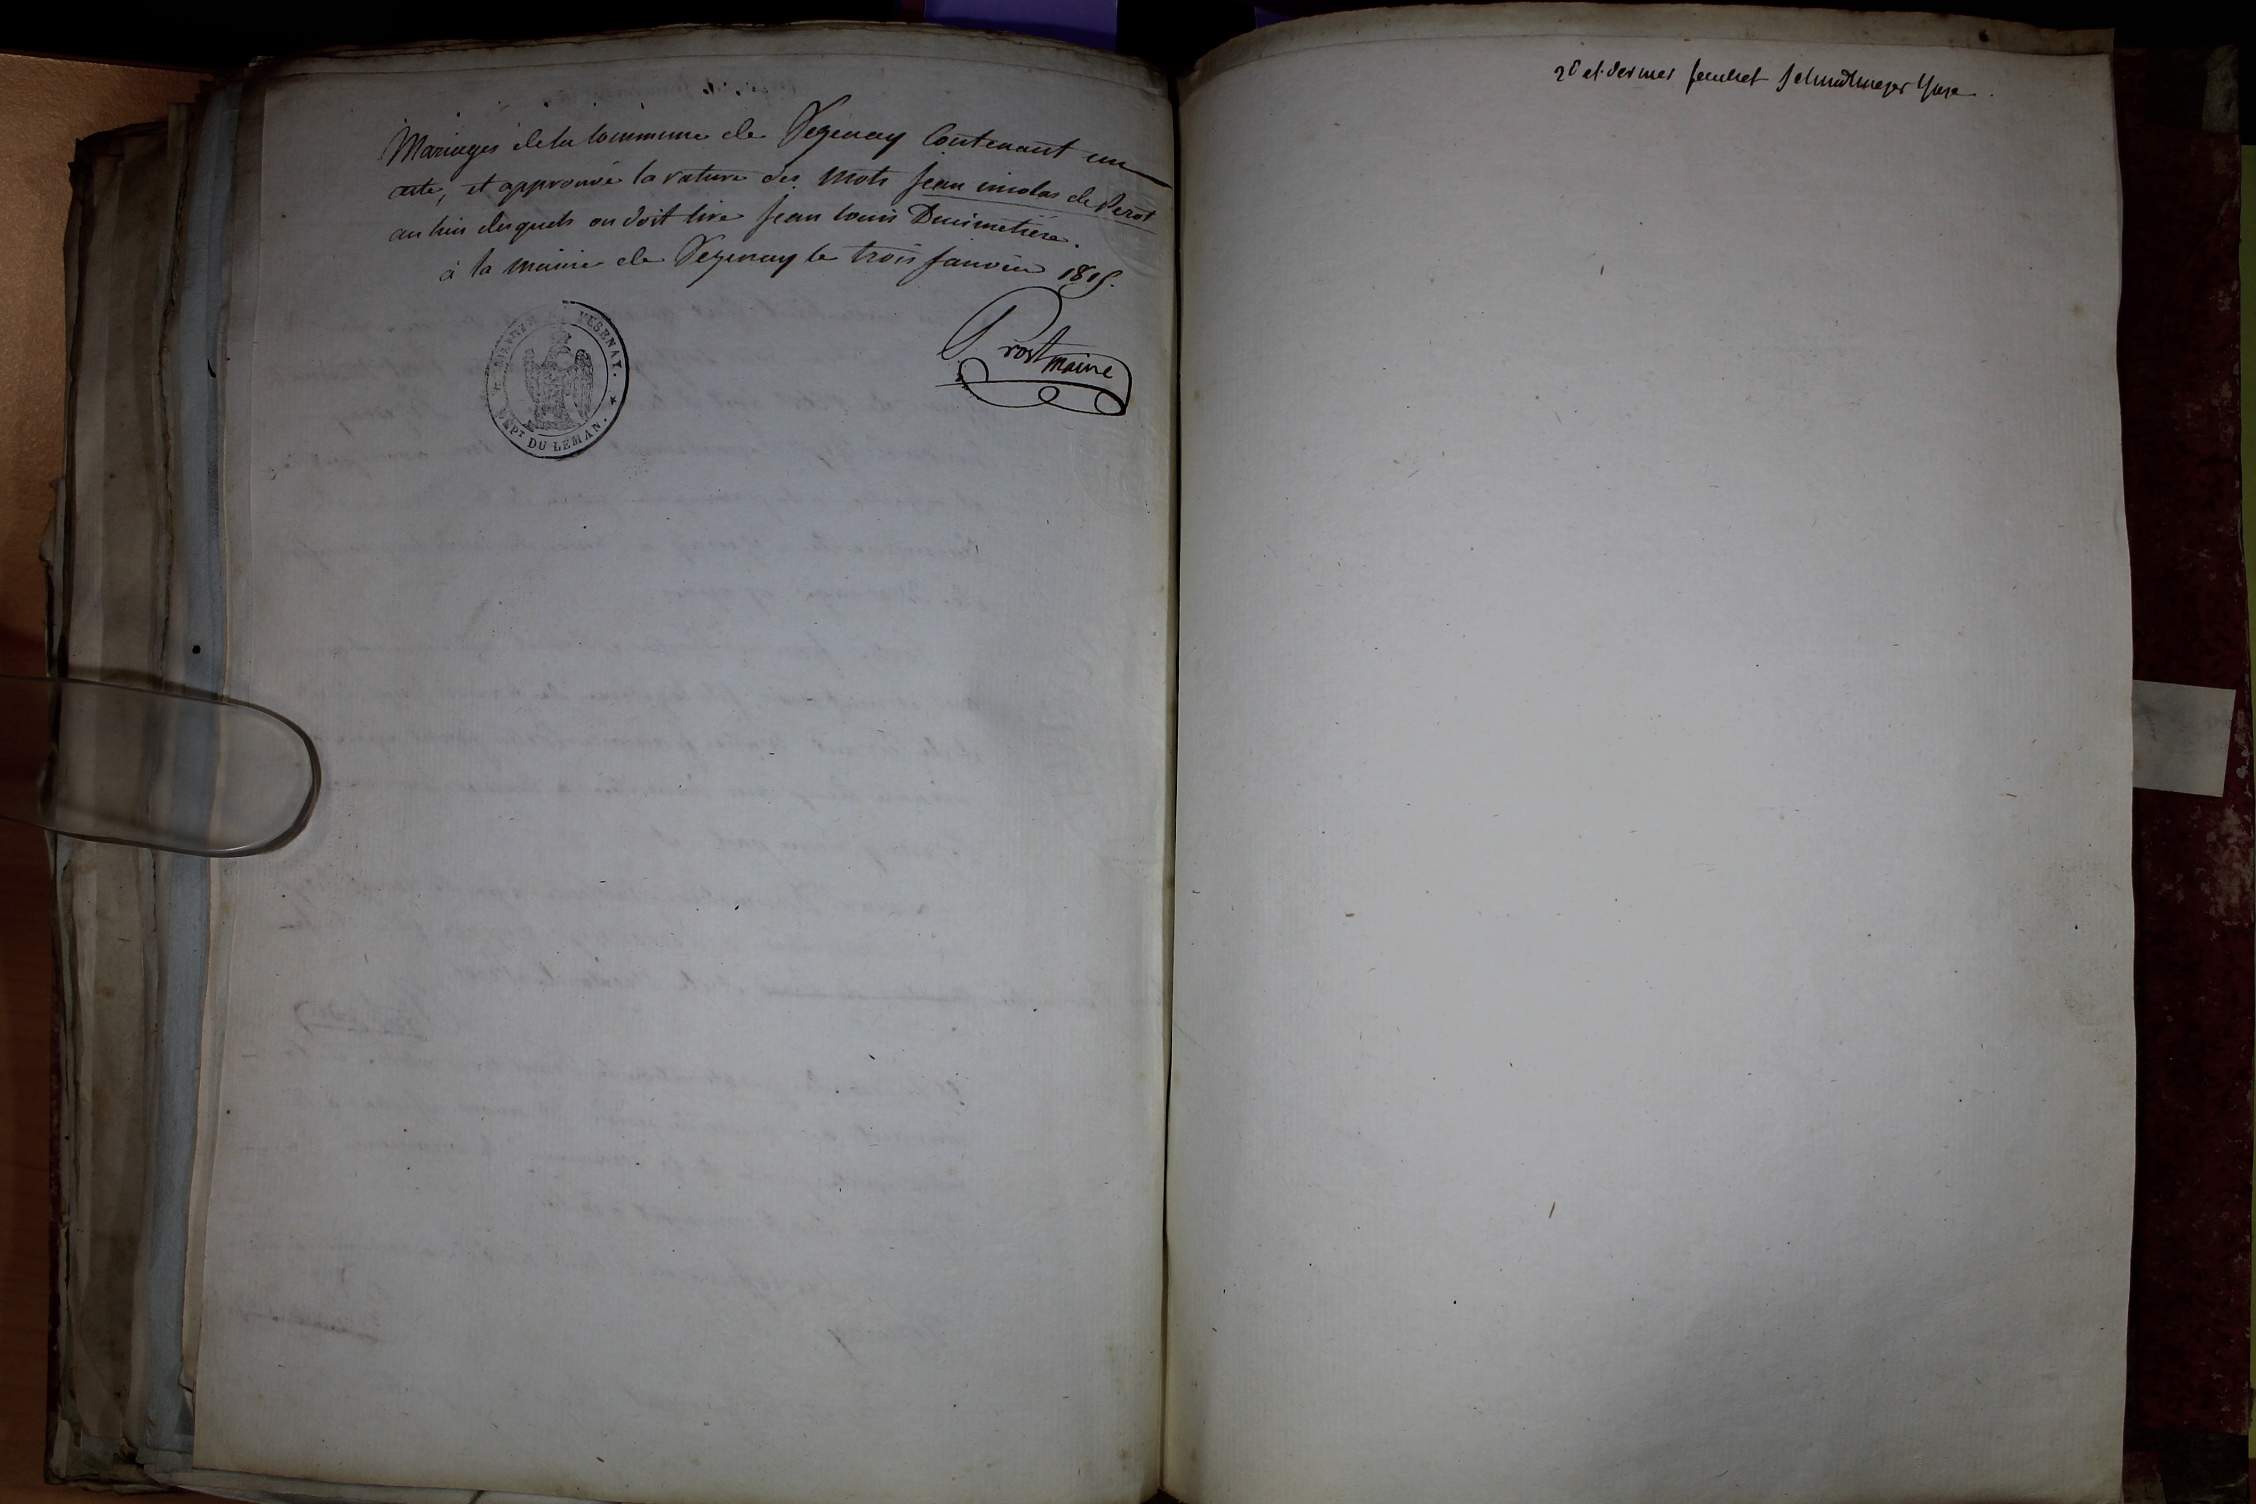 Mariages de la Commune de Vezenay Contenant un
acte, et approuvé la rature des mots Jean nicolas de Perot
au lieu desquels on doit lire Jean Louis Ducimetière.
à la mairie de Vezenay le trois Janvier 1815.
MAIRIE DE VESENAY.
DÉPT DU LEMAN.
Prost maire
2e et dernier feuillet Schmidtmeyer Juge